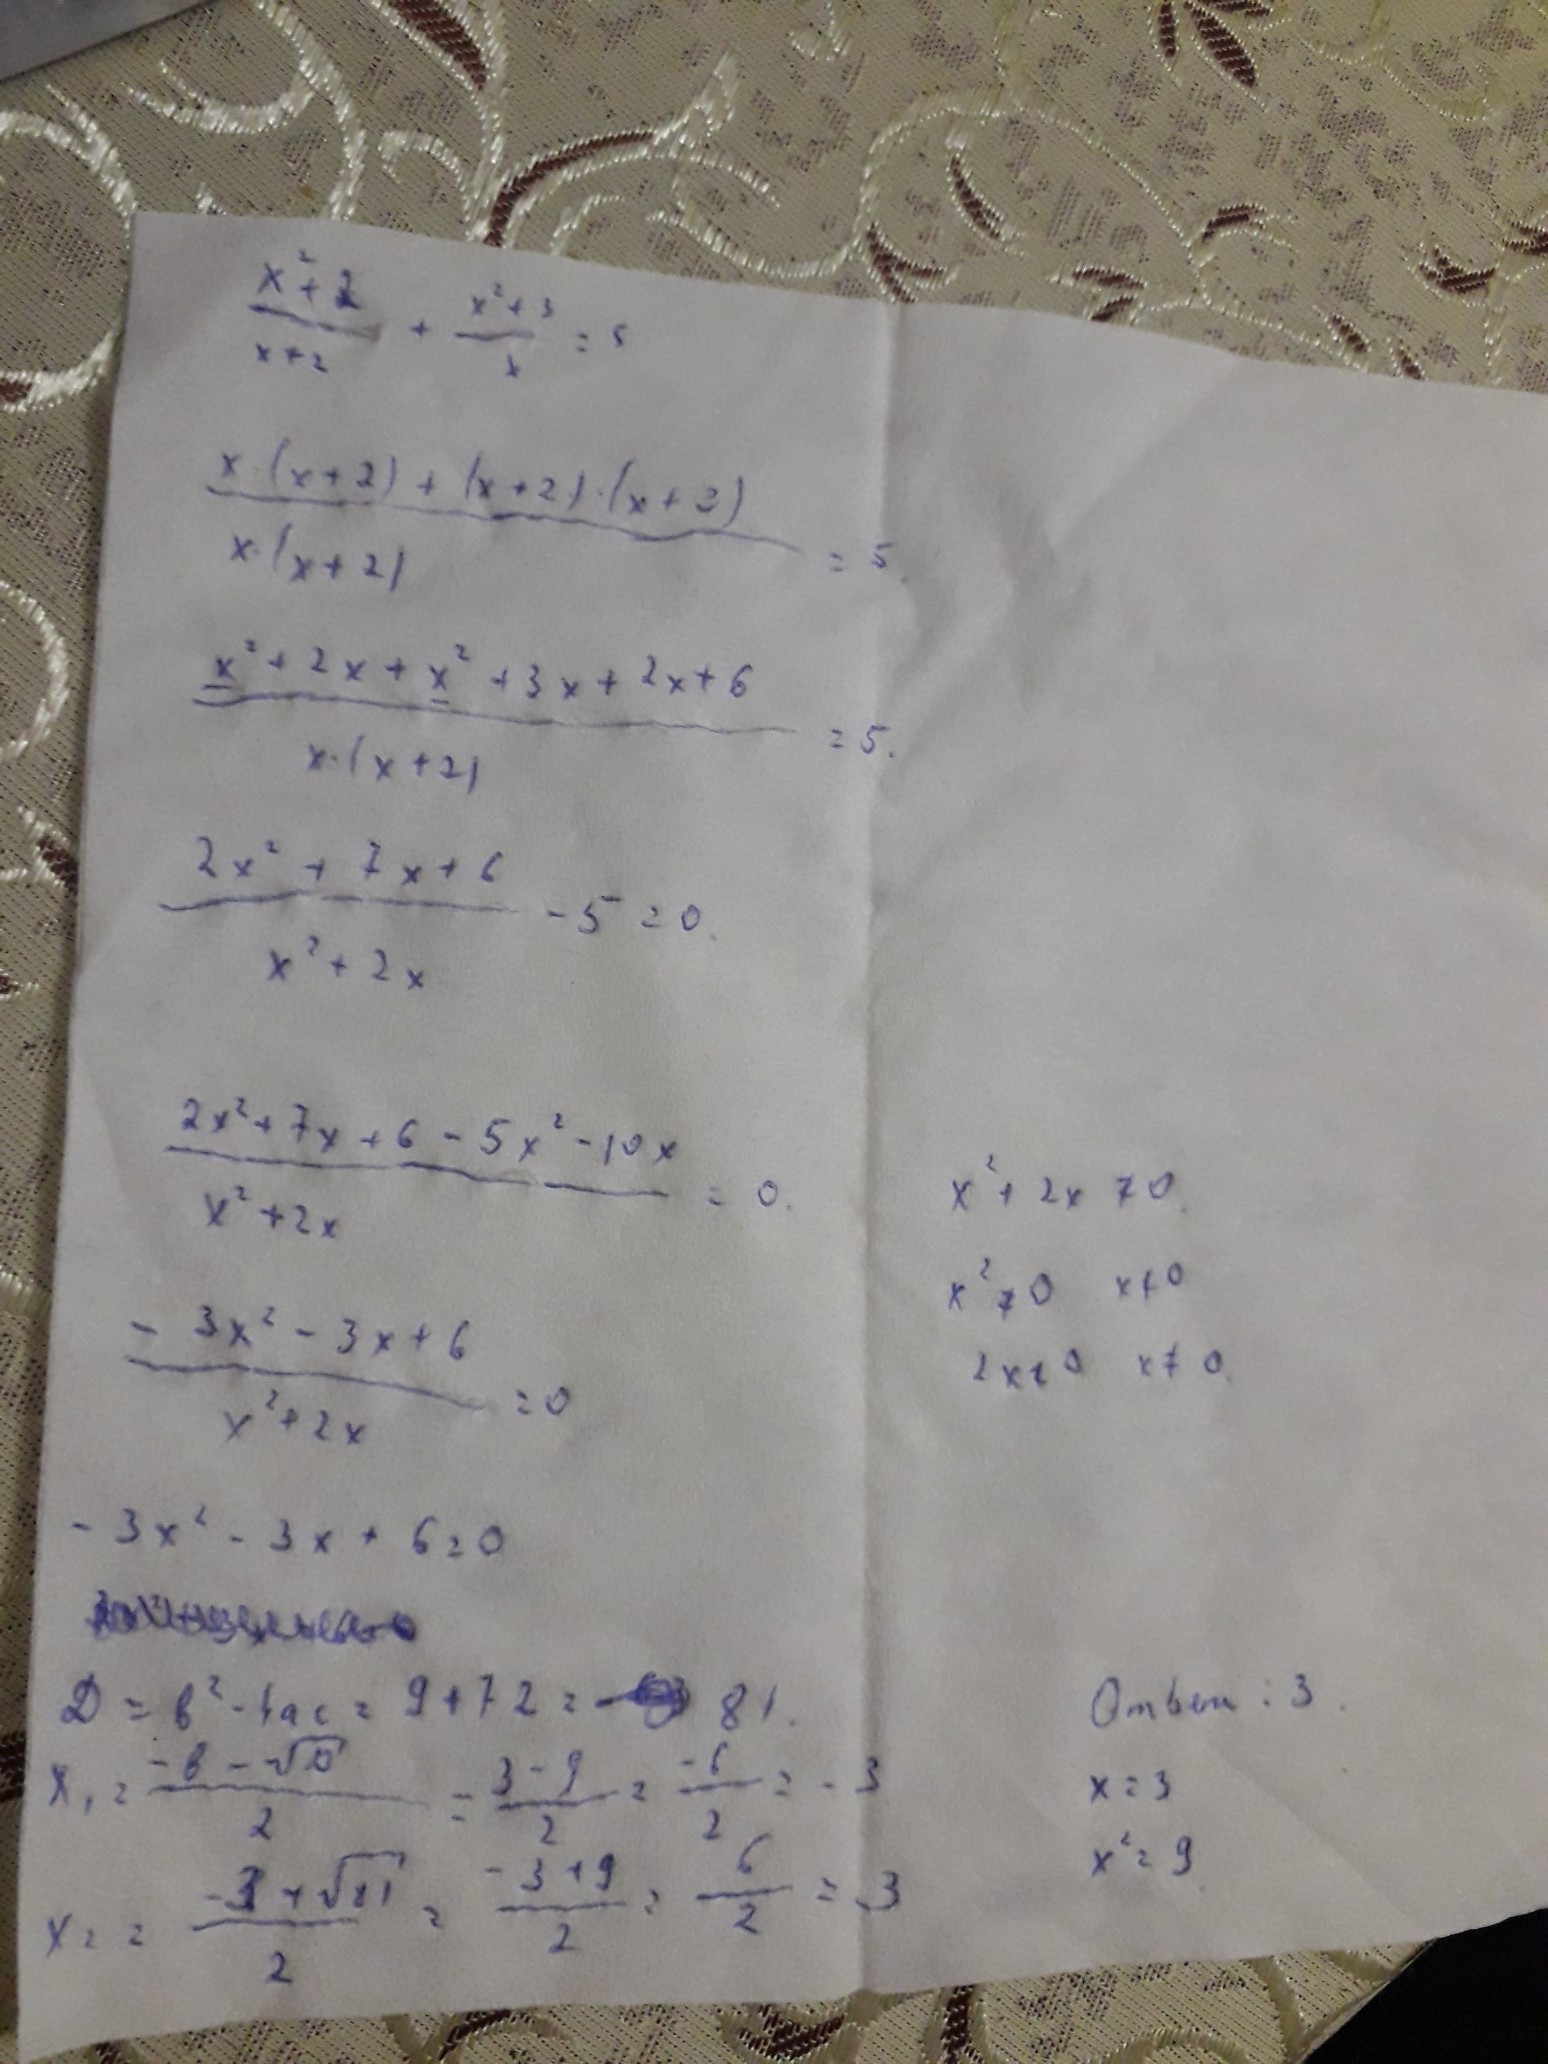 x²+2/x+2 + x²+3/x = 5
x·(x+2)+(x+2)·(x+2)/x·(x+2) = 5.
x²+2x+x²+3x+2x+6/x·(x+2) = 5.
2x²+7x+6/x²+2x - 5 = 0.
2x²+7x+6-5x²-10x/x²+2x = 0.
x²+2x ≠ 0.
x² ≠ 0 x ≠ 0
2x ≠ 0 x ≠ 0.
-3x²-3x+6/x²+2x = 0
-3x²-3x+6=0
D = b²-4ac = 9+72 = 81.
x₁ = -b-√D/2 = 3-9/2 = -6/2 = -3
x₂ = -3+√81/2 = -3+9/2 = 6/2 = 3
Ответ: 3.
x=3
x²=9